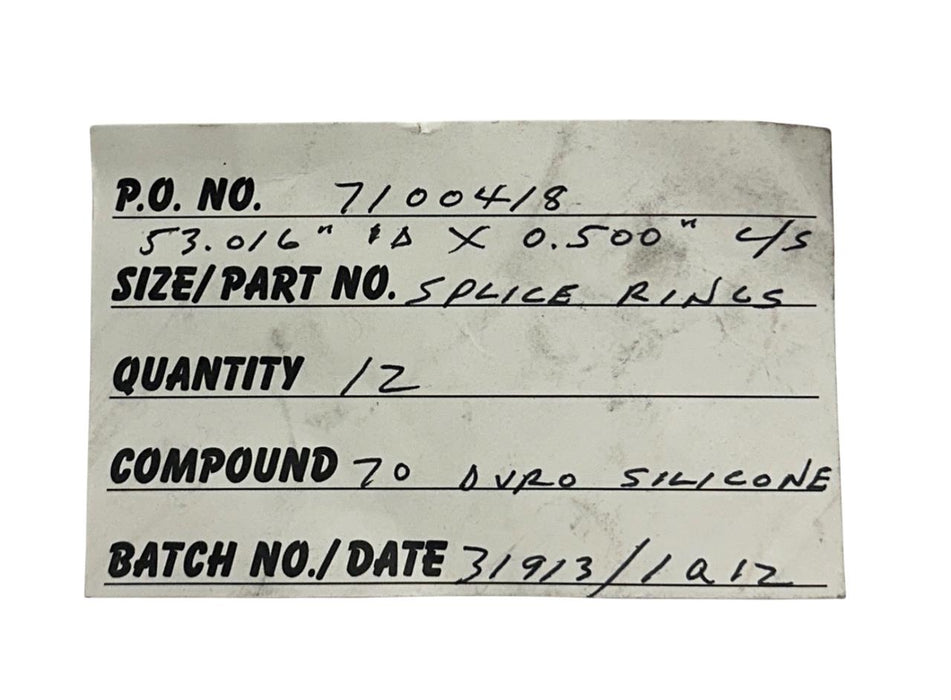 P.O. NO. 7100418
53.016" ID X 0.500" C/S
SIZE/PART NO. SPLICE RINGS
QUANTITY 12
COMPOUND 70 DURO SILICONE
BATCH NO./DATE 31913/1Q12